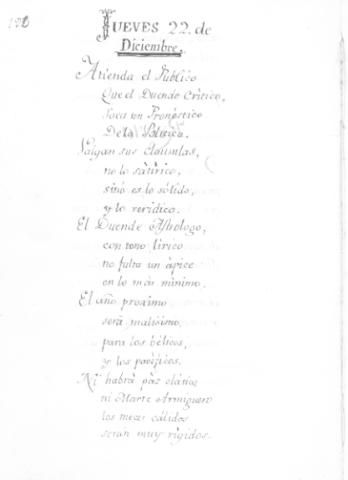 JUEVES 22. de
Diciembre.
Atienda el Público
Que el Duende Crìtico,
Saca un Pronóstico
De la Politica.
Salgan sus clausulas,
no lo satìrico,
sinó es lo sólido,
y lo verídico.
El Duende Astrologo,
con tono lirico
no falta un ápice
en lo más mínimo.
El año proximo
será malisimo,
para los bélicos,
y los pacìficos.
Ni habrá pàz
ni Marte Armigero
los meses cálidos
serán muy rígidos.